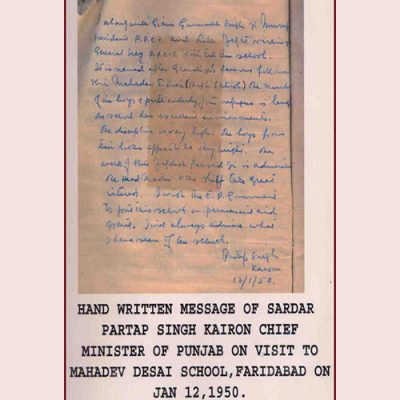 alongwith Giani Gurmukh Singh Ji
President P.P.C.C. and
General Secy. P.P.C.C. visited this school.
It is named after Ghandiji's famous follower
Shri Mahadev Desai (High School) the number
of the boys & particularly refugees is large
school has excellent environments.
The discipline is very high. The boys from
their looks appear to be very bright. The
work of Shri Jagdish Parsad Ji is
the Head Master & the staff take great
interest. I wish the E.P. Government
to this school on permanent
grant. I will always admire what
I have seen of the school.
Partap Singh
Kairon
12/1/50.
HAND WRITTEN MESSAGE OF SARDAR
PARTAP SINGH KAIRON CHIEF
MINISTER OF PUNJAB ON VISIT TO
MAHADEV DESAI SCHOOL,FARIDABAD ON
JAN 12,1950.